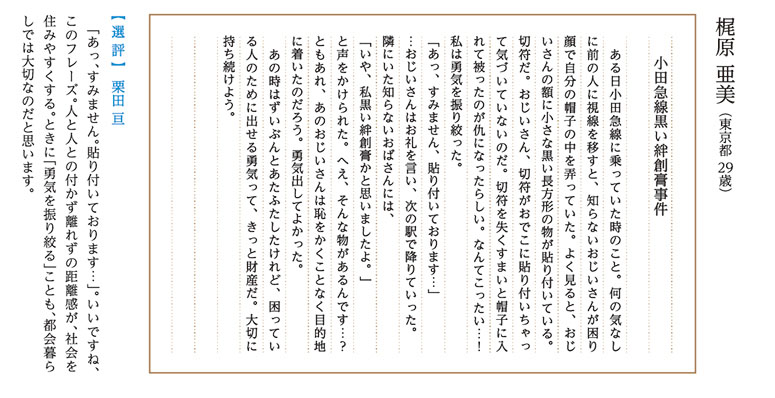 梶原 亜美（東京都 29歳）
小田急線黒い絆創膏事件
ある日小田急線に乗っていた時のこと。何の気なし
に前の人に視線を移すと、知らないおじいさんが困り
顔で自分の帽子の中を弄っていた。よく見ると、おじ
いさんの額に小さな黒い長方形の物が貼り付いている。
切符だ。おじいさん、切符がおでこに貼り付いちゃっ
て気づいていないのだ。切符を失くすまいと帽子に入
れて被ったのが仇になったらしい。なんてこったい…！
私は勇気を振り絞った。
「あっ、すみません、貼り付いております…」
…おじいさんはお礼を言い、次の駅で降りていった。
隣にいた知らないおばさんには、
「いや、私黒い絆創膏かと思いましたよ。」
と声をかけられた。へえ、そんな物があるんです…？
ともあれ、あのおじいさんは恥をかくことなく目的地
に着いたのだろう。勇気出してよかった。
あの時はずいぶんとあたふたしたけれど、困ってい
る人のために出せる勇気って、きっと財産だ。大切に
持ち続けよう。
【選評】 栗田 亘
「あっ、すみません。貼り付いております…」。いいですね、
このフレーズ。人と人との付かず離れずの距離感が、社会を
住みやすくする。ときに「勇気を振り絞る」ことも、都会暮ら
しでは大切なのだと思います。